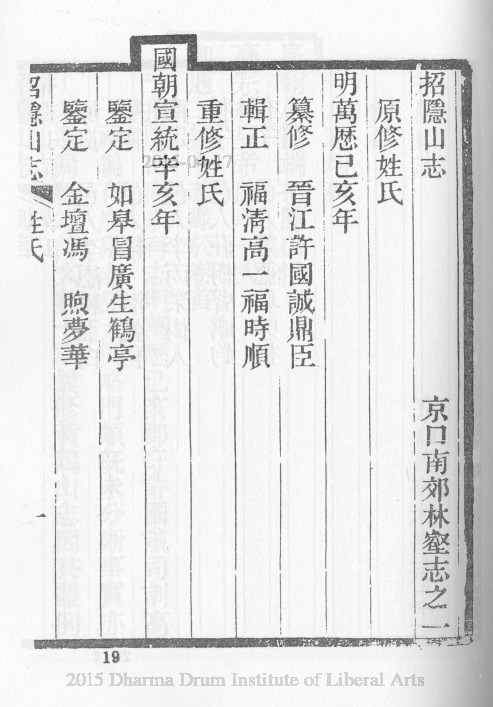 招隱山志
京口南郊林壑志之一
原修姓氏
明萬歷己亥年
纂修 晉江許國誠鼎臣
輯正 福清高一福時順
重修姓氏
國朝宣統辛亥年
鑒定 如皋冒廣生鶴亭
鑒定 金壇馮煦夢華
招隱山志 姓氏 一
19
2015 Dharma Drum Institute of Liberal Arts